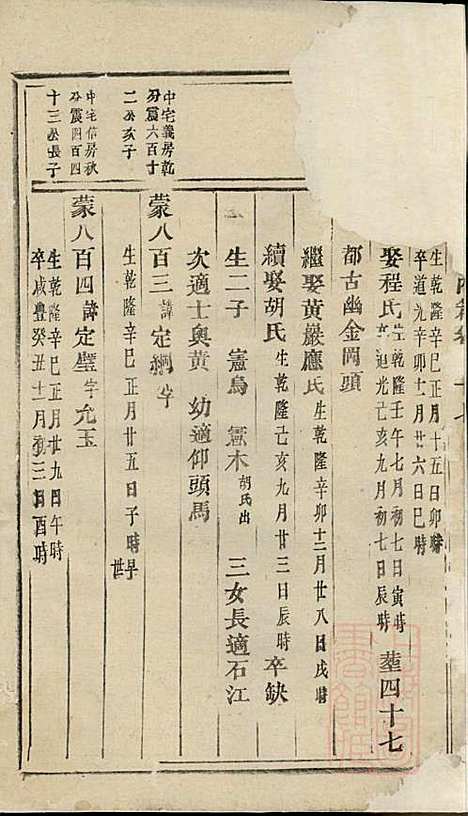 生乾隆辛巳正月十五日卯時
卒道光辛卯十二月廿六日巳時
娶程氏生乾隆壬午七月初七日寅時
卒道光己亥九月初七日辰時
塟四十七
都古幽金岡頭
繼娶黃巖應氏生乾隆辛卯十二月廿八日戌時
續娶胡氏生乾隆己亥九月廿三日辰時卒缺
生二子 憲鳥 憲木胡氏出 三女長適石江
次適士輿黃 幼適仰頭馬
中宅義房乾
分震六百十
二公亥子
蒙八百三諱定綱字
生乾隆辛巳正月廿五日子時早世
中宅信房秋
分震四百四
十三公長子
蒙八百四諱定璧字允玉
生乾隆辛巳正月廿九日午時
卒咸豐癸丑十一月初三日酉時